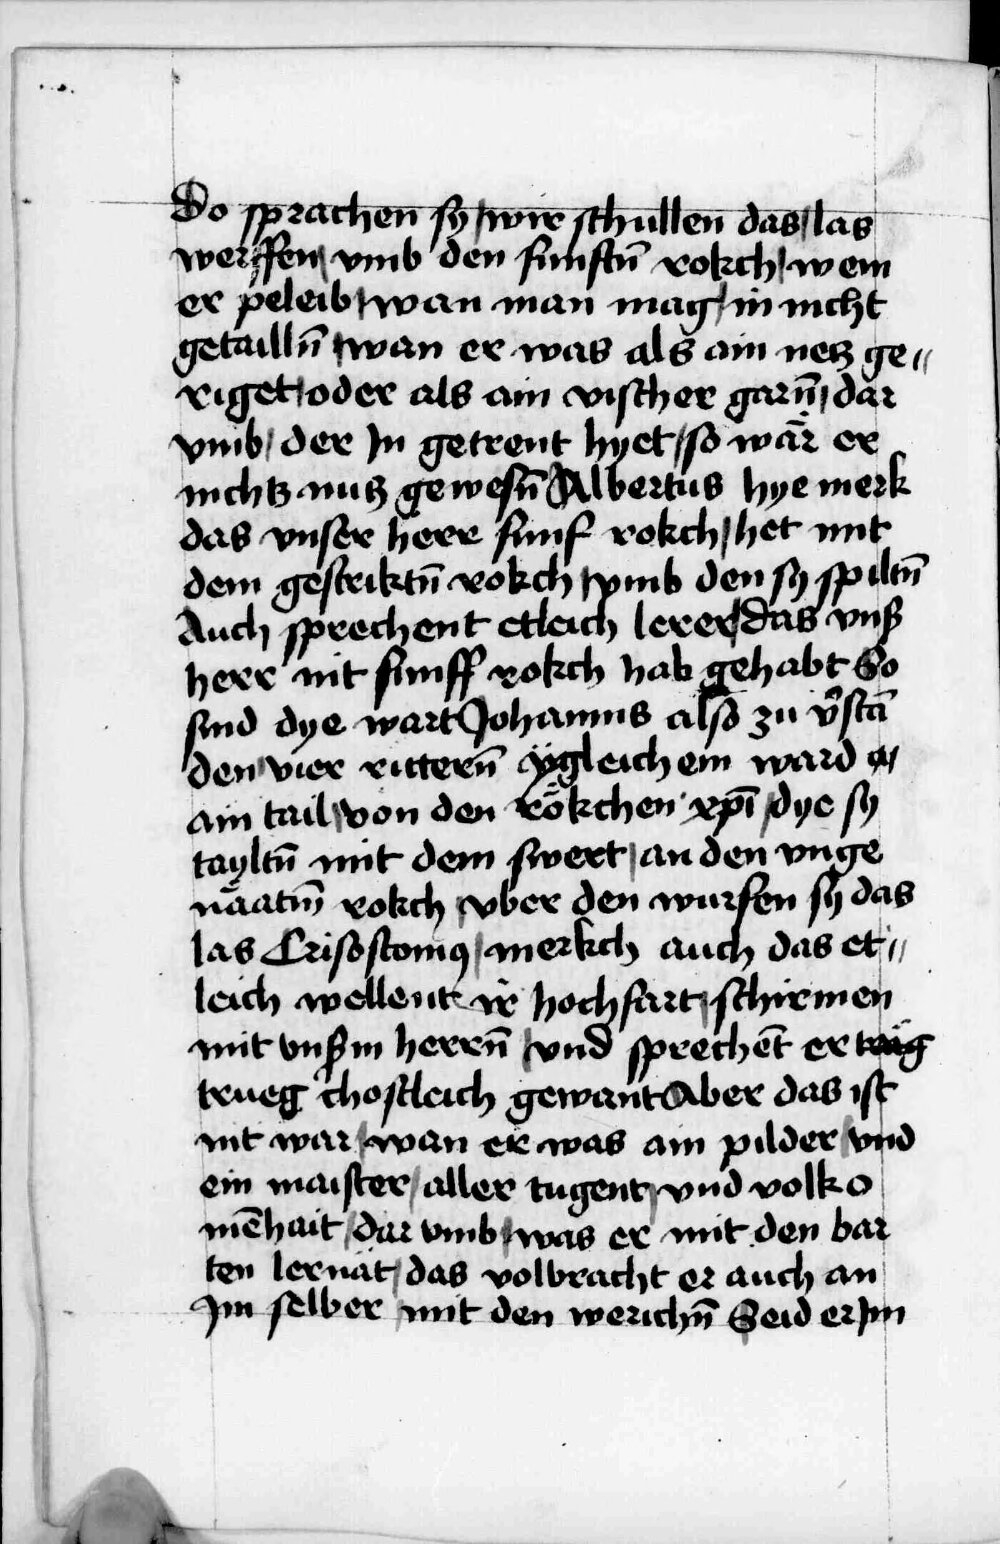 Do sprachen sy / wir schullen das / las
werffen / vmb den funftn̄ rokch / wem
er peleib / wan man mag / in nicht
getailln̄ / wan er was als ain netz ge„
riget / oder als ain vischer garn̄ / dar
vmb / der In getrent hyet / so wär er
nichtz nutz gewesn̄ Albertus hye merk
das vnser herr funf rokch / het mit
dem gestriktn̄ rokch / vmb den sy spiltn̄
Auch sprechent etleich lerer / das vnß
herr nit funff rokch hab gehabt So
sind dye wart Johannis also zu v̄stā
den / vier rittern̄ ygleichem ward a /
ain tail / von den rökchen xp̄i / dye sy
tayltn̄ mit dem swert / an den vnge
näatn̄ rokch / vber den wurfen sy das
las Crisostomꝯ / merkch auch das et„
leich wellent ir hochfart / schirmen
mit vnßm herrn̄ / vnd sprechēt er träg
trueg chostleich gewant Aber das ist
nit war / wan er was ain pilder / vnd
ein maister / aller tugent / vnd volko
mēhait / dar vmb / was er mit den bar
ten lernät / das volbracht er auch an
Im selber / mit den werichn̄ Seid er Im